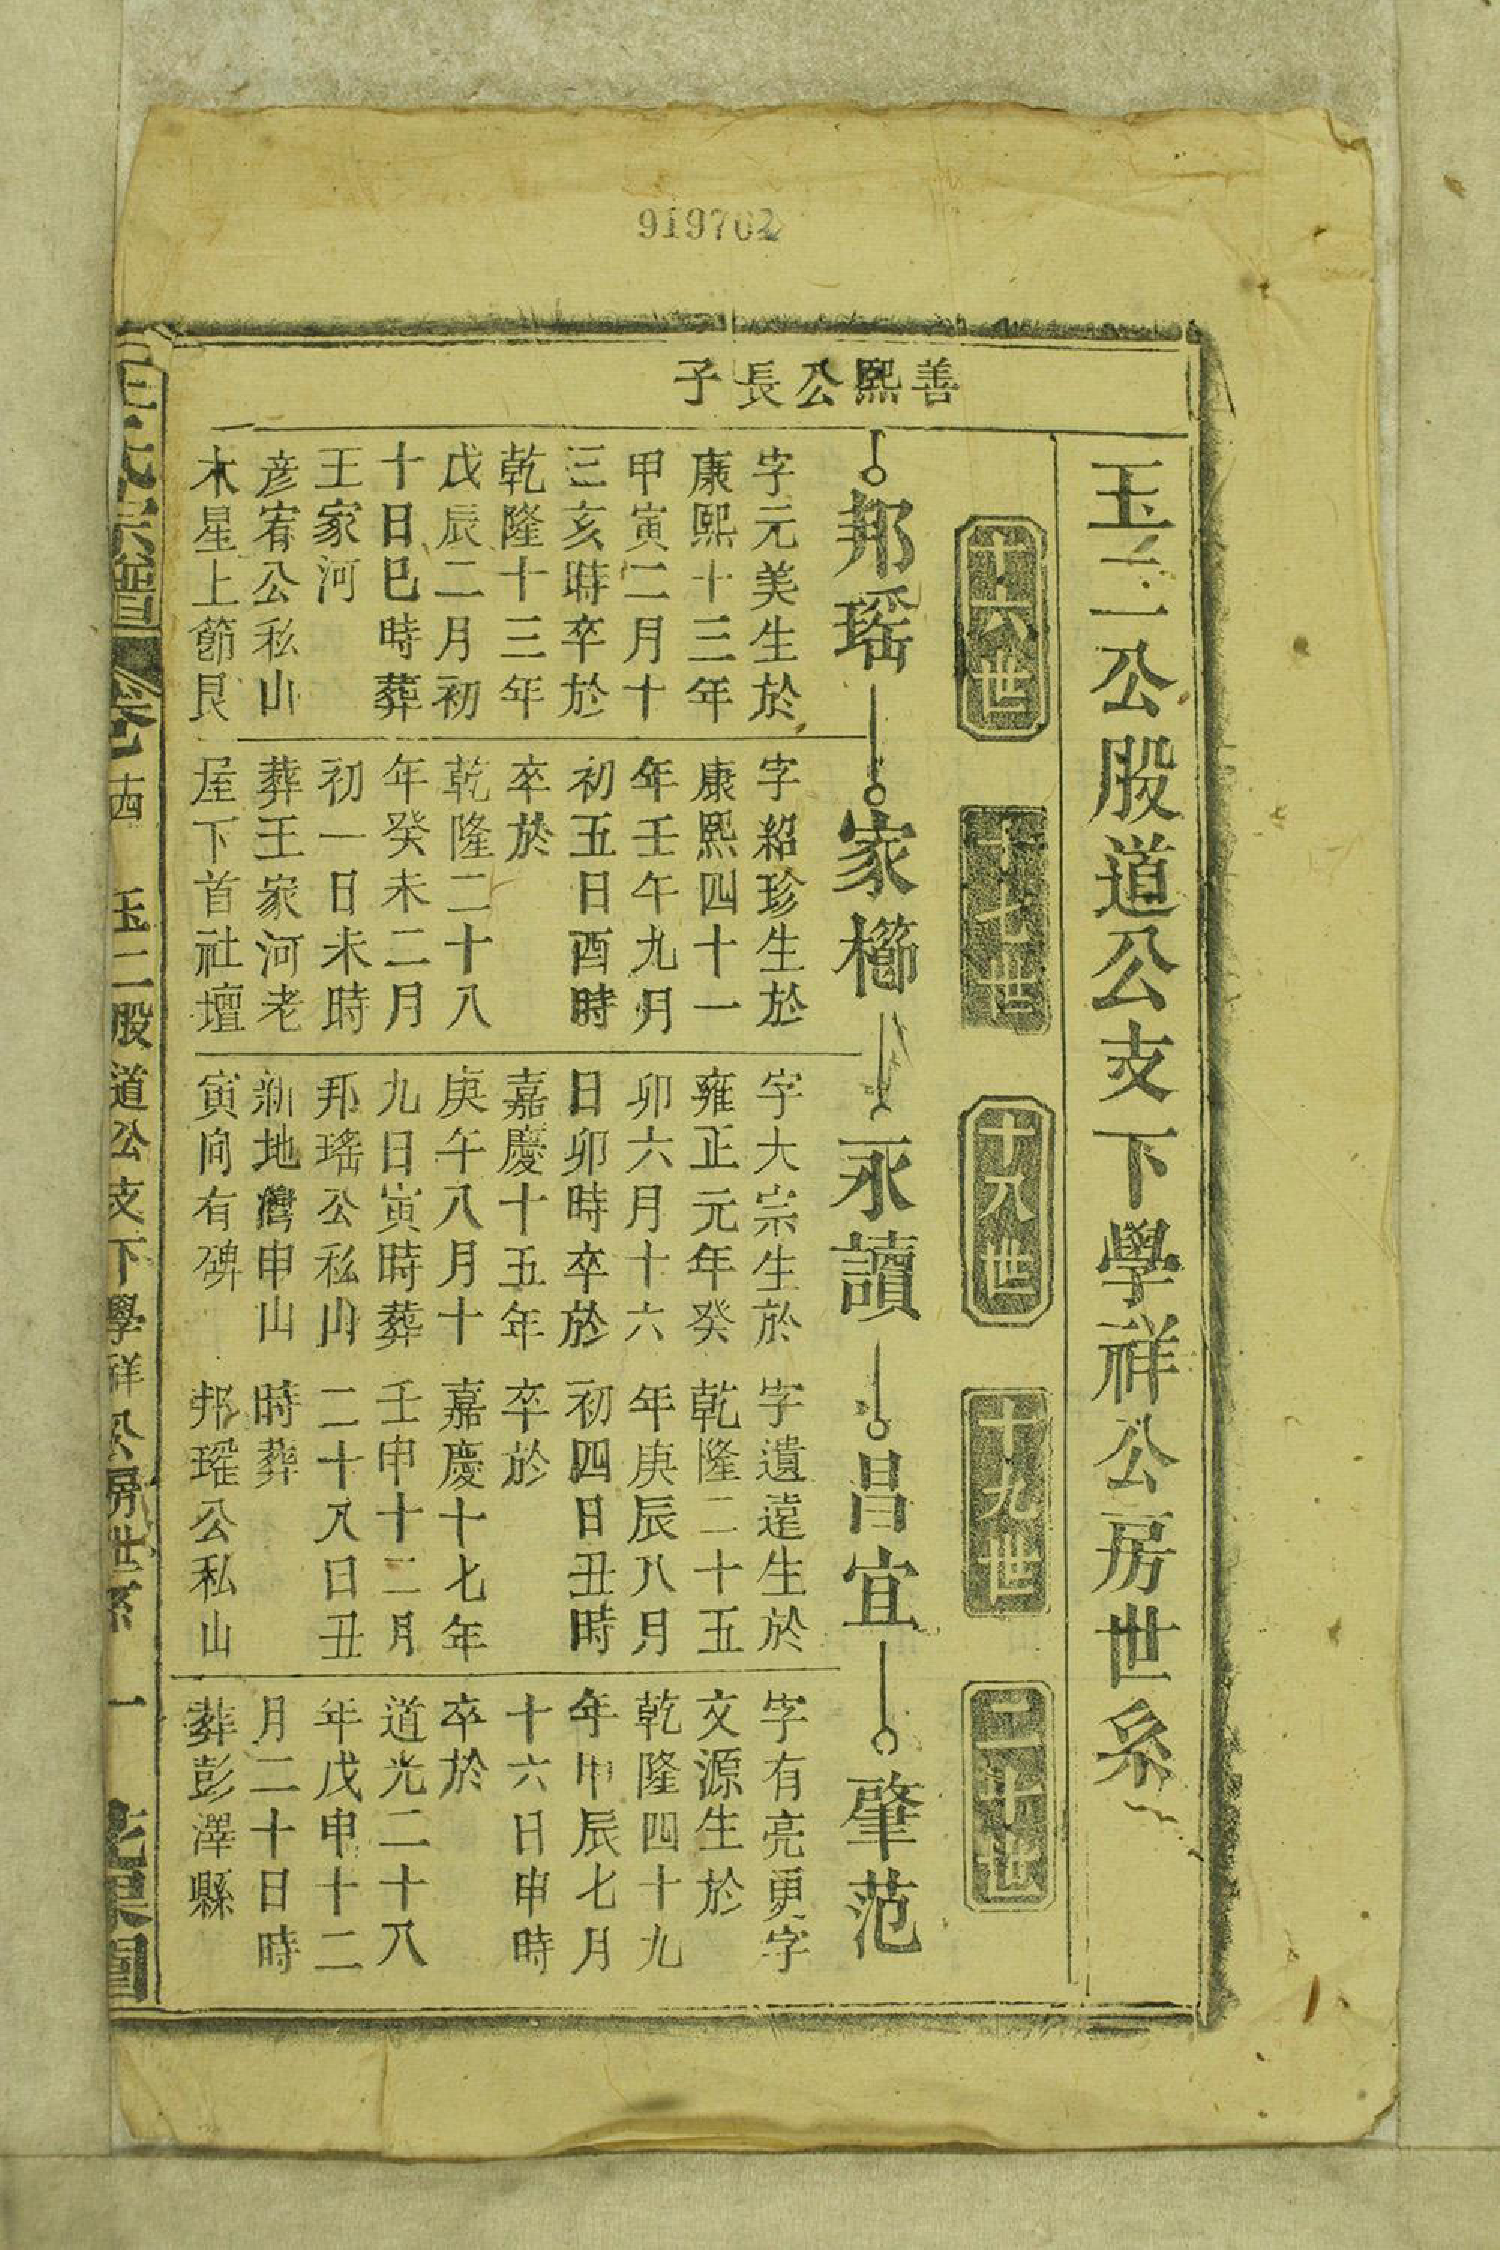 919762
玉二公股道公支下學祥公房世系
十六世
十七世
十八世
十九世
二十世
善熙公長子
邦瑤
家櫛
永讀
昌宜
肇范
字元美生於
康熙十三年
甲寅二月十
三亥時卒於
乾隆十三年
戊辰二月初
十日巳時葬
王家河
彦宥公私山
木星上節艮
字紹珍生於
康熙四十一
年壬午九月
初五日酉時
卒於
乾隆二十八
年癸未二月
初一日未時
葬王家河老
屋下首社壇
字大宗生於
雍正元年癸
卯六月十六
日卯時卒於
嘉慶十五年
庚午八月十
九日寅時葬
邦瑤公私山
新地灣申山
寅向有碑
字遺遠生於
乾隆二十五
年庚辰八月
初四日丑時
卒於
嘉慶十七年
壬申十二月
二十八日丑
時葬
邦瑤公私山
字有亮更字
文源生於
乾隆四十九
年甲辰七月
十六日申時
卒於
道光二十八
年戊申十二
月二十日時
葬彭澤縣
王氏宗譜
卷西
玉二股道公支下學祥公房世系
一